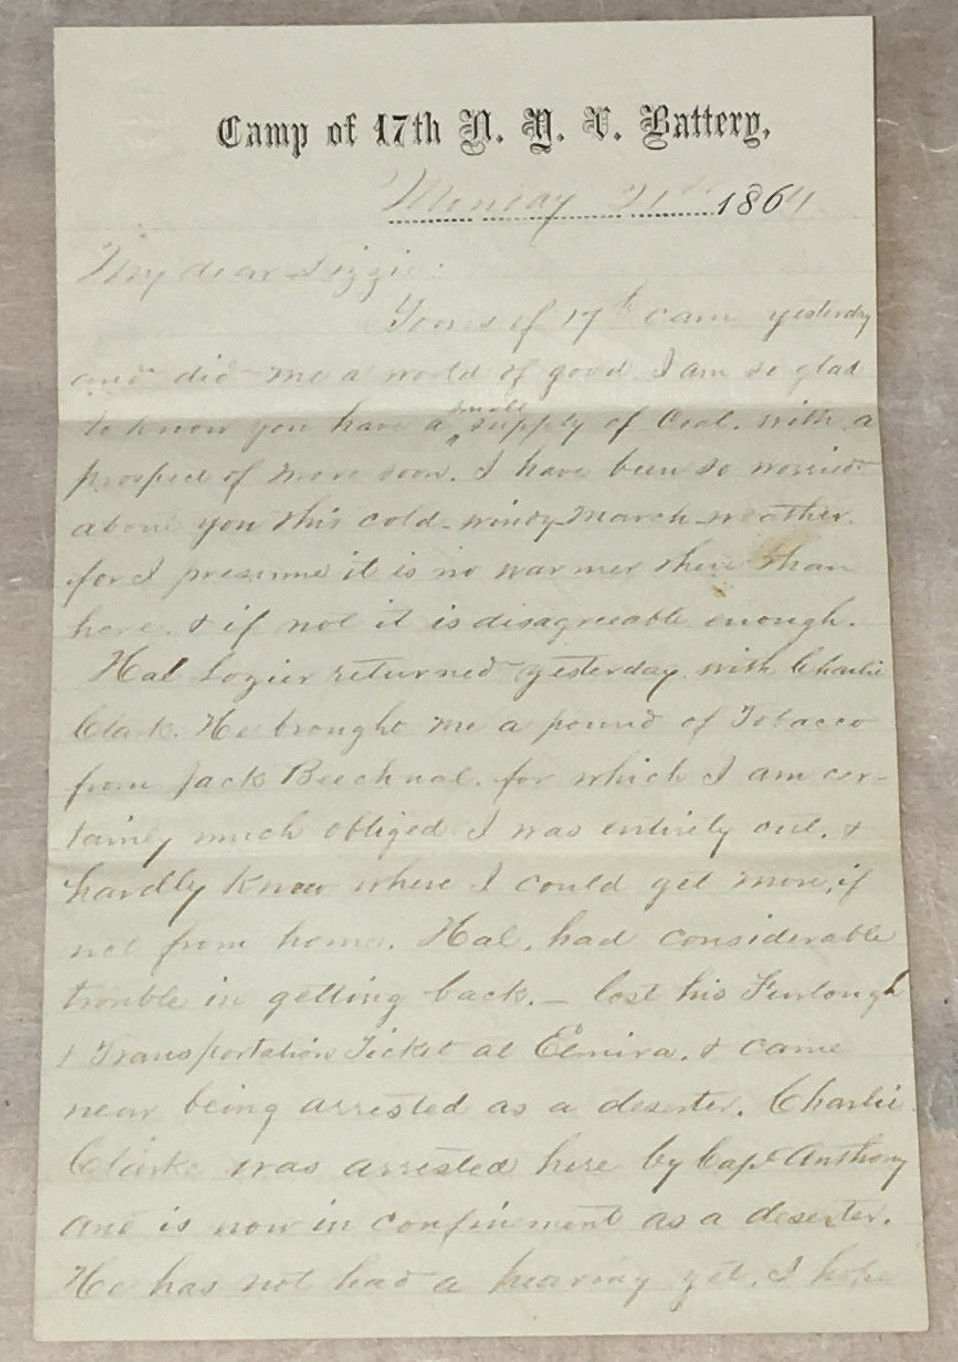 Camp of 17th N. Y. V. Battery,
Monday 21st 1864
My dear Lizzie:
Yours of 17th came yesterday
and did me a world of good I am so glad
to know you have a small supply of Coal. with a
prospect of more soon. I have been so worried
about you this cold - windy - March - weather.
for I presume it is no warmer there than
here. & if not it is disagreeable enough.
Hal Lozier returned yesterday. with Charlie
Clark. He brought me a pound of Tobacco
from Jack Beechnal. for which I am cer-
tainly much obliged I was entirely out. &
hardly know where I could get more, if
not from home. Hal. had considerable
trouble in getting back. - lost his Furlough
& Transportation Ticket at Elmira. & came
near being arrested as a deserter. Charlie
Clarke was arrested here by Capt Anthony
and is now in confinement as a deserter.
He has not had a hearing yet. I hope